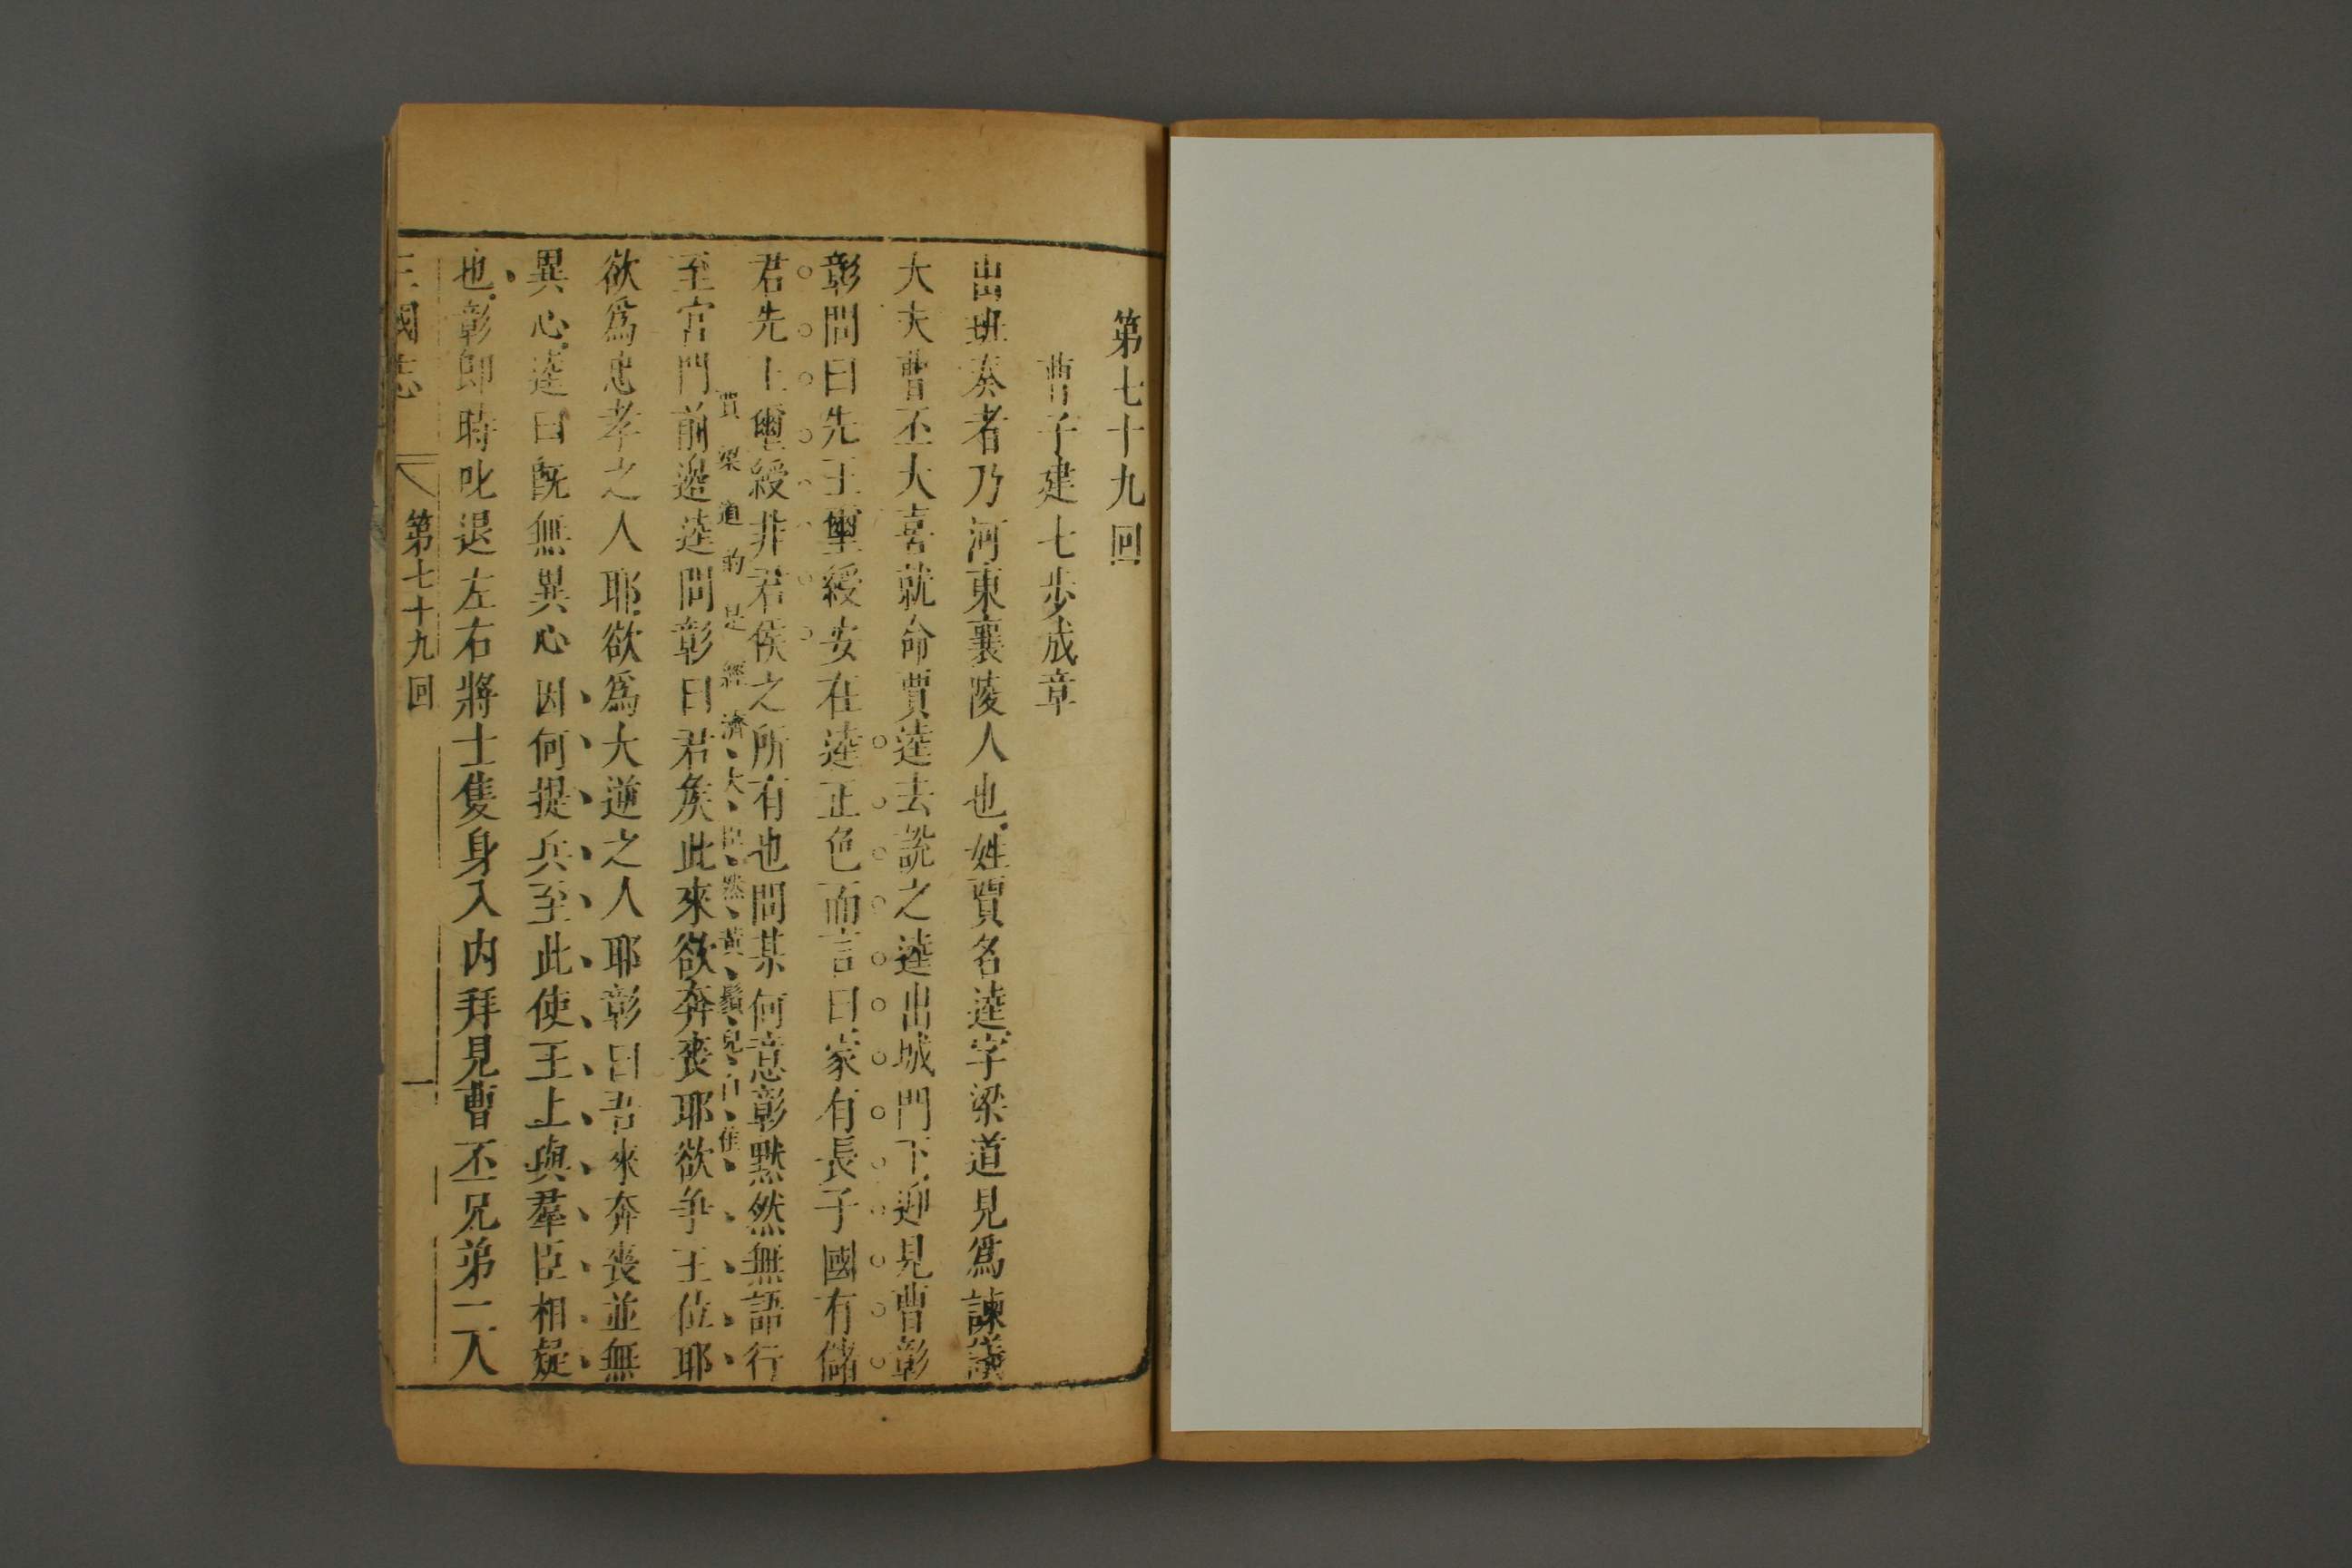 第七十九回
曹子建七步成章
出班奏者乃河東襄陵人也姓賈名逵字梁道見爲諫議
大夫曹丕大喜就命賈逵去說之逵出城門下迎見曹彰
彰問曰先王璽綬安在逵正色而言曰家有長子國有儲
君先王璽綬非君侯之所有也問某何意彰黙然無語行
賈梁道的是經濟大臣然黃鬚兒自佳
至宫門前邉逵問彰曰君矦此來欲奔喪耶欲争王位耶
欲爲忠孝之人耶欲爲大逆之人耶彰曰吾來奔喪並無
異心逵曰旣無異心因何提兵至此使王上與羣臣相疑
也彰即時叱退左右將士隻身入内拜見曹丕兄弟二人
三國志 第七十九回 一